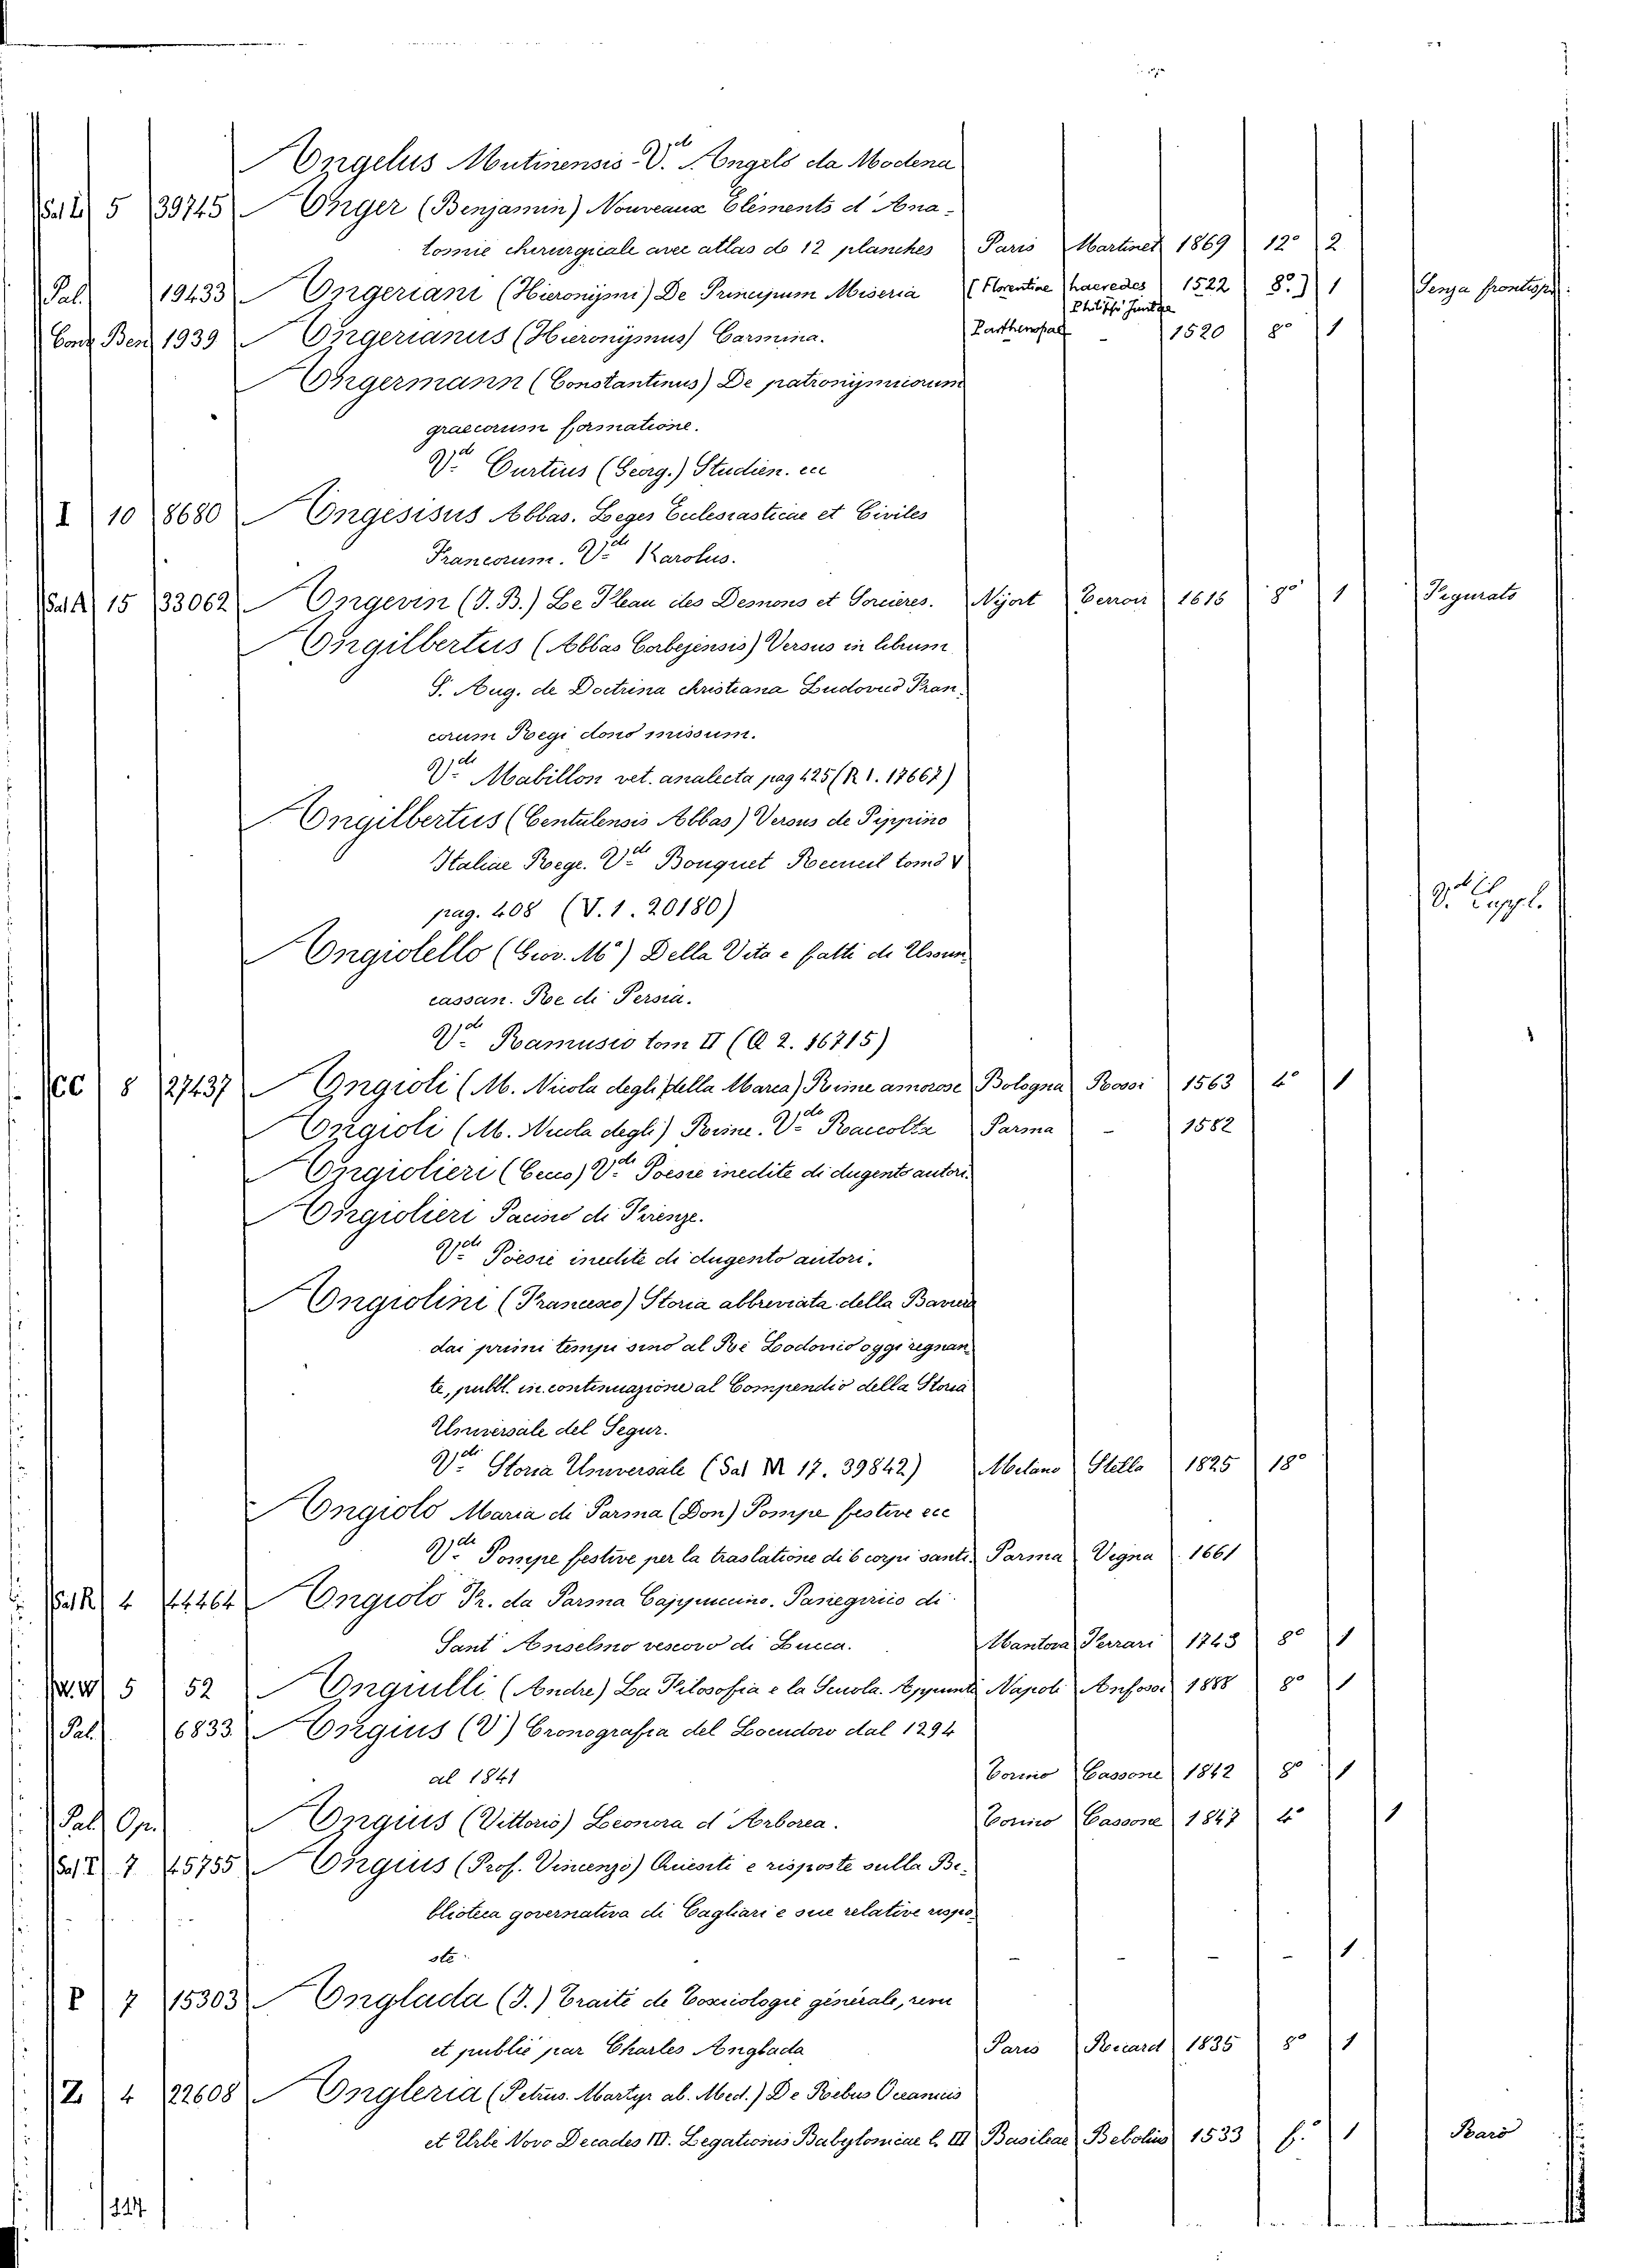 Angelus Mutinensis - V.de Angelo da Modena
Sal L 5 39745 Anger (Benjamin) Nouveaux Eléments d'Ana-
tomie cherurgicale avec atlas de 12 planches Paris Martinet 1869 12° 2
Pal. 19433 Angeriani (Hieronijmi) De Principum Miseria (Florentine haeredes Philippi Juntae 1522 8°.) 1 Senza frontisp.
Conv Ben 1939 Angerianus (Hieronijmus) Carmina. Parthenopae - 1520 8° 1
Angermann (Constantinus) De patronijmicorum
graecorum formatione.
V.de Curtius (Georg.) Studien. ecc
I 10 8680 Angesisus Abbas. Leges Eclesiasticae et Civiles
Francorum. V.de Karolus.
Sal A 15 33062 Angevin (J. B.) Le Fleau des Demons et Sorcieres. Nijort Terroir 1615 8° 1 Figurato
Angilbertus (Abbas Corbejensis) Versus in librum
S. Aug. de Doctrina christiana Ludovico Fran-
corum Regi dono missum.
V.de Mabillon vet. analecta pag 425 (R 1. 17667)
Angilbertus (Centulensis Abbas) Versus de Pippino
Italiae Rege. V.de Bouquet Recueil tomo V
pag. 408 (V. 1. 20180) V.de Suppl.
Angiolello (Giov. Mª) Della Vita e fatti di Ussun-
cassan. Re di Persia.
V.de Ramusio tom II (Q 2. 16715)
CC 8 27437 Angioli (M. Nicola degli della Marca) Rime amorose Bologna Rossi 1563 4° 1
Angioli (M. Nicola degli) Rime. V.de Raccolta Parma - 1582
Angiolieri (Cecco) V.de Poesie inedite di dugento autori.
Angiolieri Pacino di Firenze.
V.de Poesie inedite di dugento autori.
Angiolini (Francesco) Storia abbreviata della Baviera
dai primi tempi sino al Re Lodovico oggi regnan-
te, pubbl. in continuazione al Compendio della Storia
Universale del Segur.
V.de Storia Universale (Sal M 17. 39842) Milano Stella 1825 18°
Angiolo Maria di Parma (Don) Pompe festive ecc
V.de Pompe festive per la traslatione di 6 corpi santi. Parma Vigna 1661
Sal R 4 44464 Angiolo Fr. da Parma Cappuccino. Panegirico di
Sant' Anselmo vescovo di Lucca. Mantova Ferrari 1743 8° 1
W.W 5 52 Angiulli (Andre) La Filosofia e la Scuola. Appunti Napoli Anfossi 1888 8° 1
Pal. 6833 Angius (V) Cronografia del Logudoro dal 1294
al 1841 Torino Cassone 1842 8° 1
Pal Op. Angius (Vittorio) Leonora d'Arborea. Torino Cassone 1847 4° 1
Sal. T 7 45755 Angius (Prof. Vincenzo) Quesiti e risposte sulla Bi-
blioteca governativa di Cagliari e sue relative rispo-
ste - - - - 1
P 7 15303 Anglada (J.) Traité de Toxicologie générale, revu
et publié par Charles Anglada Paris Rocard 1835 8° 1
Z 4 22608 Angleria (Petrus. Martyr ab. Med.) De Rebus Oceanicis
et Orbe Novo Decades III. Legationis Babylonicae l. III Basileae Bebelius 1533 f.° 1 Raro